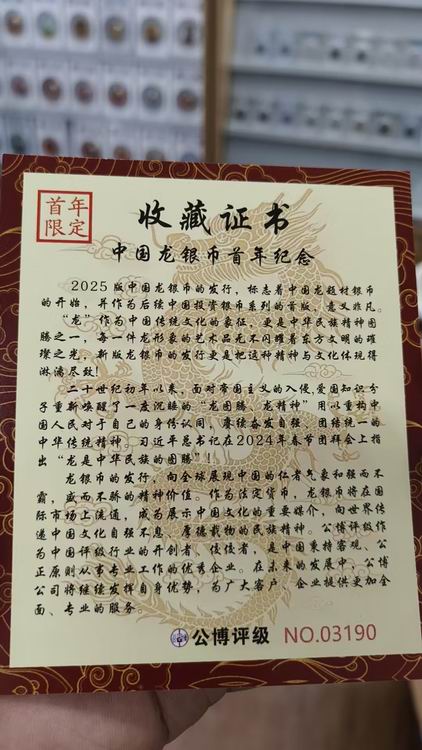 首年
限定
收藏证书
中国龙银币首年纪念
2025版中国龙银币的发行，标志着中国龙题材银币
的开始，并作为后续中国投资银币系列的首版，意义非凡。
“龙”作为中国传统文化的象征，更是中华民族精神图
腾之一，每一件龙形象的艺术品无不闪耀着东方文明的璀
璨之光，新版龙银币的发行更是把这种精神与文化体现得
淋漓尽致！
二十世纪初年以来，面对帝国主义的入侵，爱国知识分
子重新唤醒了一度沉睡的“龙图腾、龙精神”用以重构中
国人民对于自己的身份认同，赓续奋发自强、团结统一的
中华传统精神，习近平总书记在2024年春节团拜会上指
出“龙是中华民族的图腾”！
龙银币的发行，向全球展现中国的仁者气象和强而不
霸，盛而不骄的精神价值。作为法定货币，龙银币将在国
际市场上流通，成为展示中国文化的重要媒介，向世界传
递中国文化自强不息、厚德载物的民族精神。公博评级作
为中国评级行业的开创者、佼佼者，是中国秉持客观、公
正原则从事专业工作的优秀企业。在未来的发展中，公博
公司将继续发挥自身优势，为广大客户、企业提供更加全
面、专业的服务。
公博评级 NO.03190